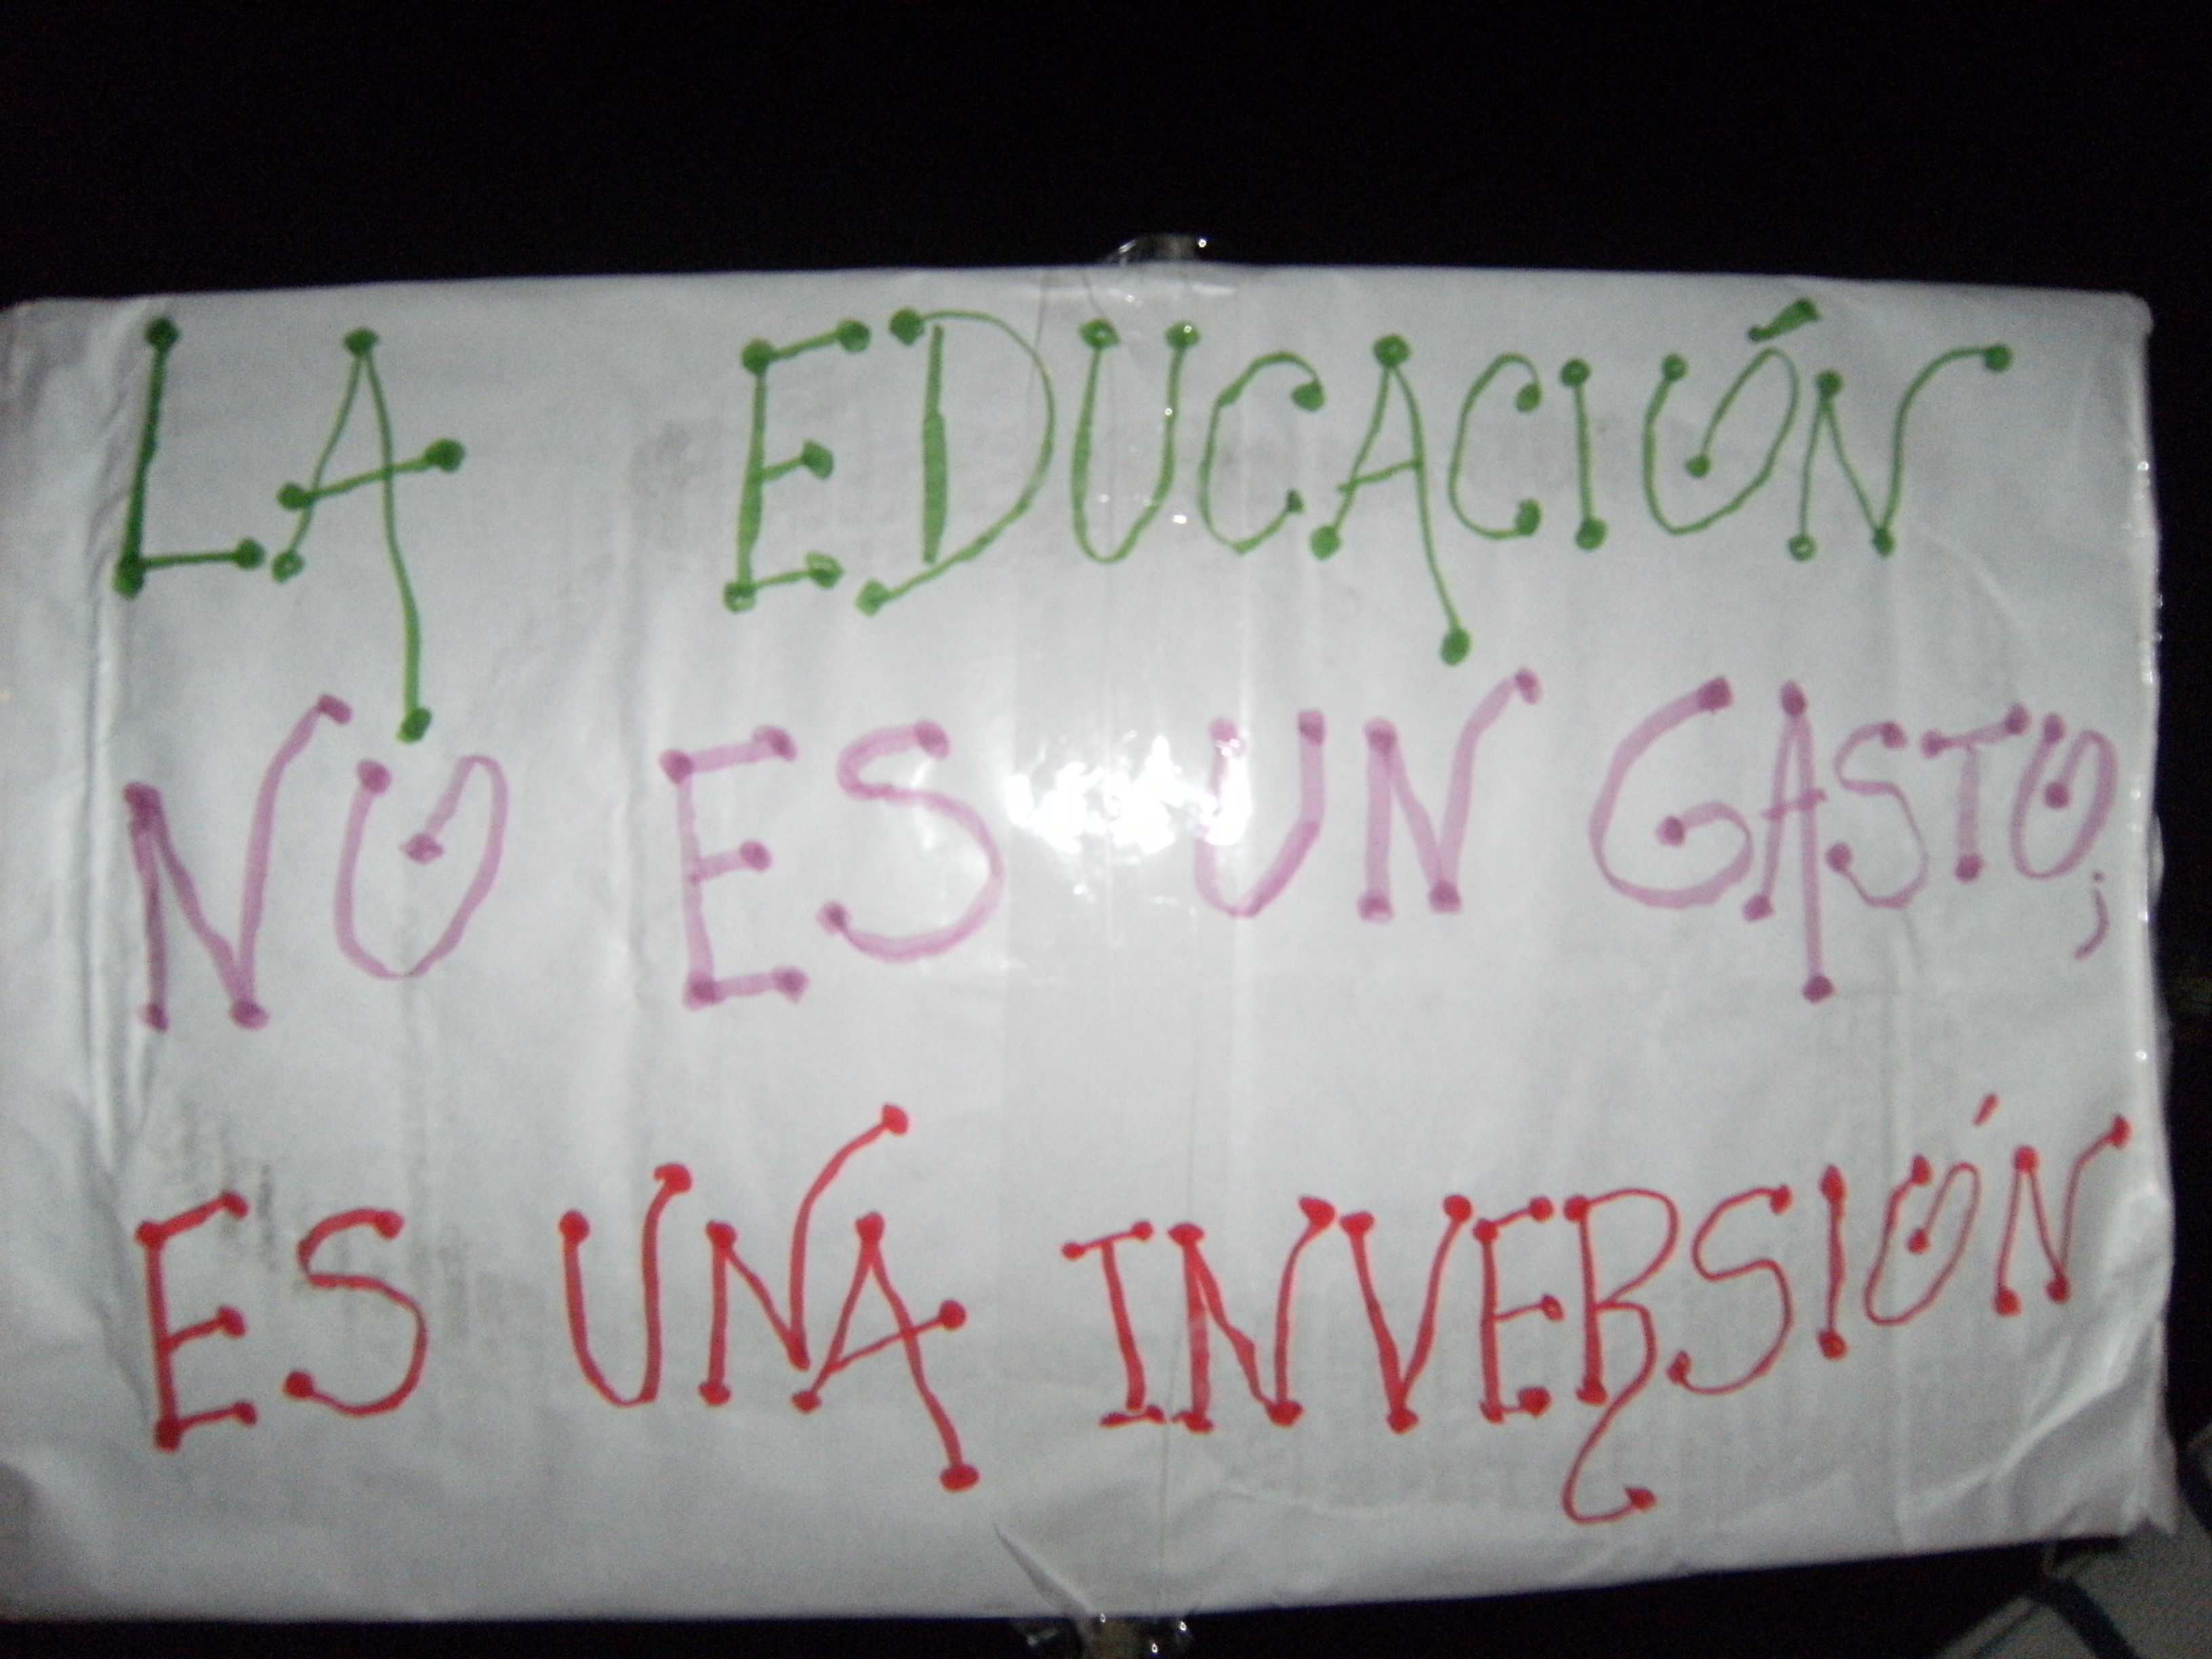 LA EDUCACIÓN
NO ES UN GASTO;
ES UNA INVERSIÓN